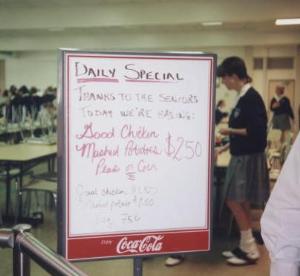 DAILY SPECIAL
THANKS TO THE SENIORS
TODAY WE'RE HAVING:
Good Chicken
Mashed Potatoes $2.50
Peas or Corn
Good chicken
Mashed potato
75¢
ENJOY Coca-Cola